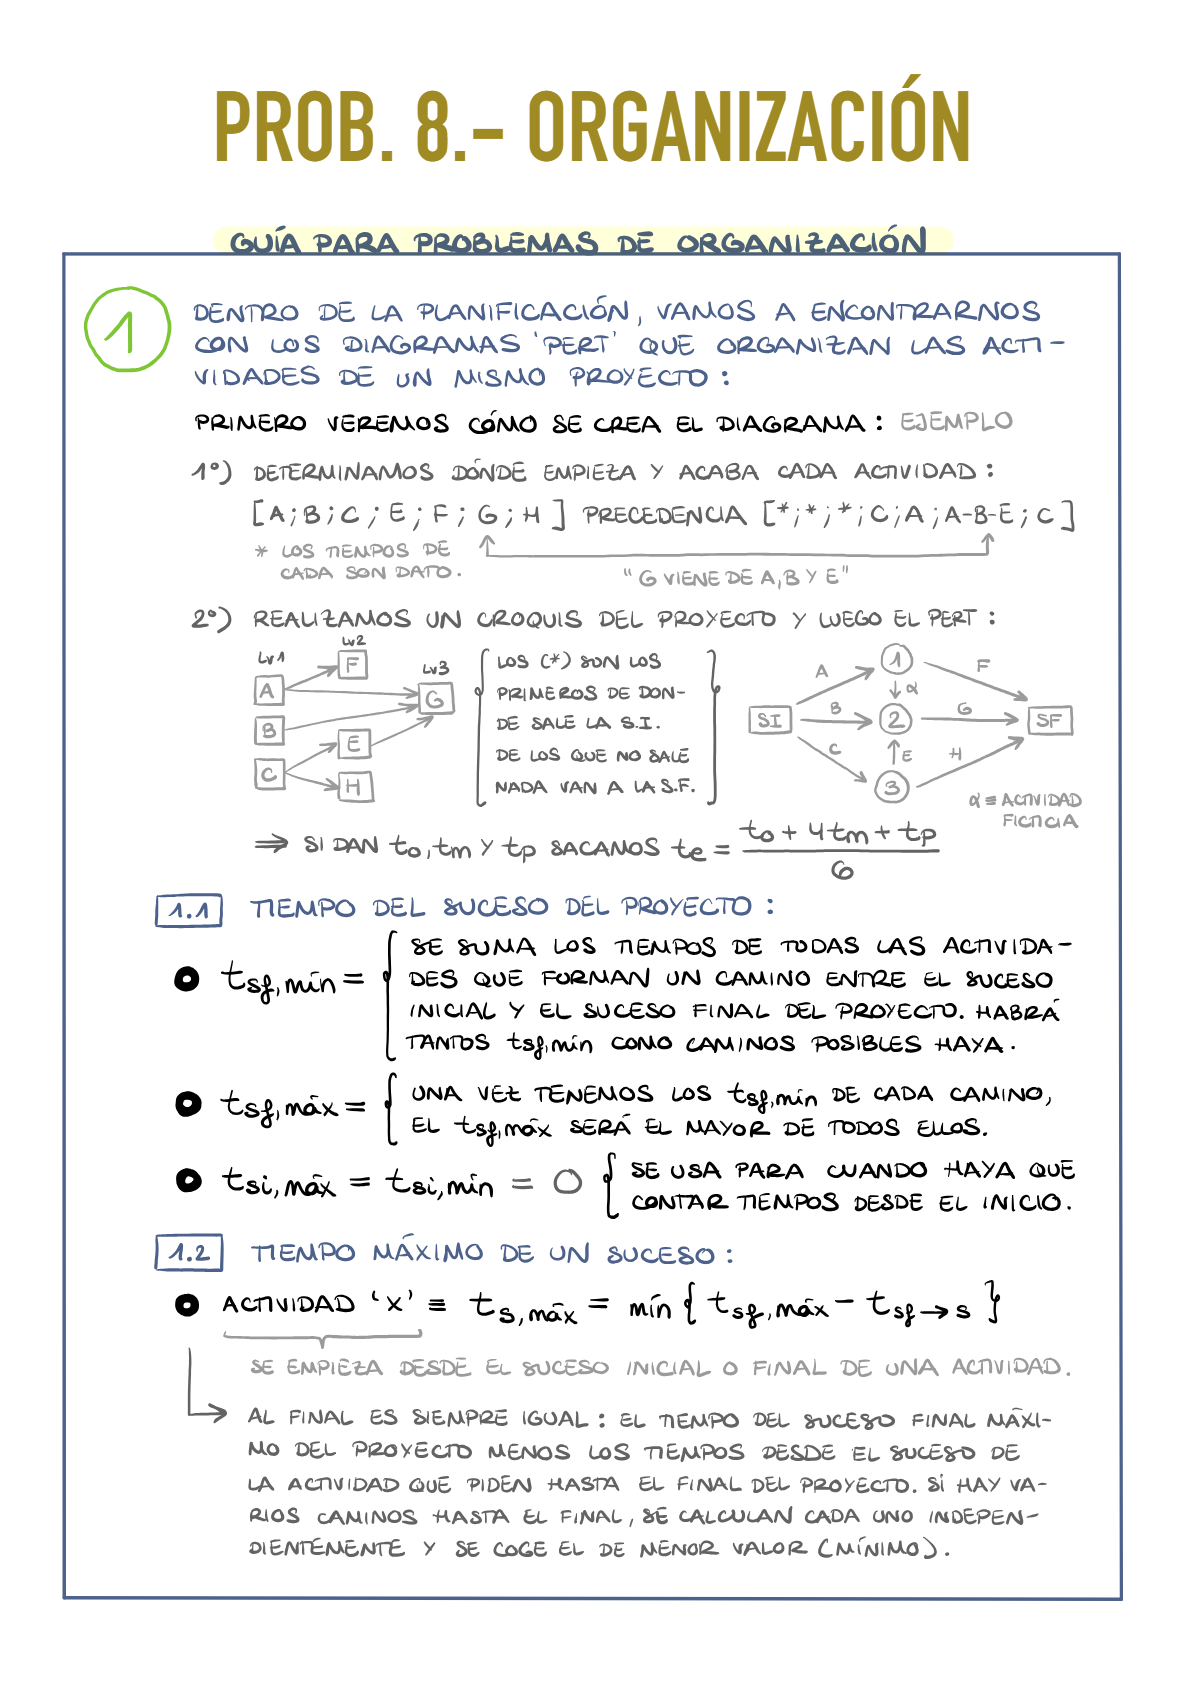 PROB. 8.- ORGANIZACIÓN
GUÍA PARA PROBLEMAS DE ORGANIZACIÓN
1
DENTRO DE LA PLANIFICACIÓN, VAMOS A ENCONTRARNOS
CON LOS DIAGRAMAS 'PERT' QUE ORGANIZAN LAS ACTI-
VIDADES DE UN MISMO PROYECTO:
PRIMERO VEREMOS CÓMO SE CREA EL DIAGRAMA: EJEMPLO
1º) DETERMINAMOS DÓNDE EMPIEZA Y ACABA CADA ACTIVIDAD:
[A;B;C;E;F;G;H] PRECEDENCIA [*;*;*;C;A;A-B-E;C]
* LOS TIEMPOS DE
CADA SON DATO.
"G VIENE DE A, B Y E"
2º) REALIZAMOS UN CROQUIS DEL PROYECTO Y LUEGO EL PERT:
LV1 LV2 LV3
A F G
B E
C H
LOS (*) SON LOS
PRIMEROS DE DON-
DE SALE LA S.I.
DE LOS QUE NO SALE
NADA VAN A LA S.F.
A 1 F
α
SI B 2 G SF
C E H
3
α ≡ ACTIVIDAD
FICTICIA
⇒ SI DAN to, tm Y tp SACAMOS te = (to + 4tm + tp) / 6
1.1 TIEMPO DEL SUCESO DEL PROYECTO:
• tsf,mín = { SE SUMA LOS TIEMPOS DE TODAS LAS ACTIVIDA-
DES QUE FORMAN UN CAMINO ENTRE EL SUCESO
INICIAL Y EL SUCESO FINAL DEL PROYECTO. HABRÁ
TANTOS tsf,mín COMO CAMINOS POSIBLES HAYA.
• tsf,máx = { UNA VEZ TENEMOS LOS tsf,mín DE CADA CAMINO,
EL tsf,máx SERÁ EL MAYOR DE TODOS ELLOS.
• tsi,máx = tsi,mín = 0 { SE USA PARA CUANDO HAYA QUE
CONTAR TIEMPOS DESDE EL INICIO.
1.2 TIEMPO MÁXIMO DE UN SUCESO:
• ACTIVIDAD 'X' ≡ ts,máx = mín { tsf,máx - tsf→s }
SE EMPIEZA DESDE EL SUCESO INICIAL O FINAL DE UNA ACTIVIDAD.
AL FINAL ES SIEMPRE IGUAL: EL TIEMPO DEL SUCESO FINAL MÁXI-
MO DEL PROYECTO MENOS LOS TIEMPOS DESDE EL SUCESO DE
LA ACTIVIDAD QUE PIDEN HASTA EL FINAL DEL PROYECTO. SI HAY VA-
RIOS CAMINOS HASTA EL FINAL, SE CALCULAN CADA UNO INDEPEN-
DIENTEMENTE Y SE COGE EL DE MENOR VALOR (MÍNIMO).